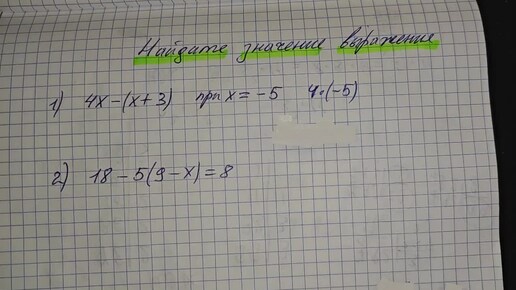 Найдите значение выражение
1) 4x − (x + 3) при x = −5 4·(−5)
2) 18 − 5(9 − x) = 8